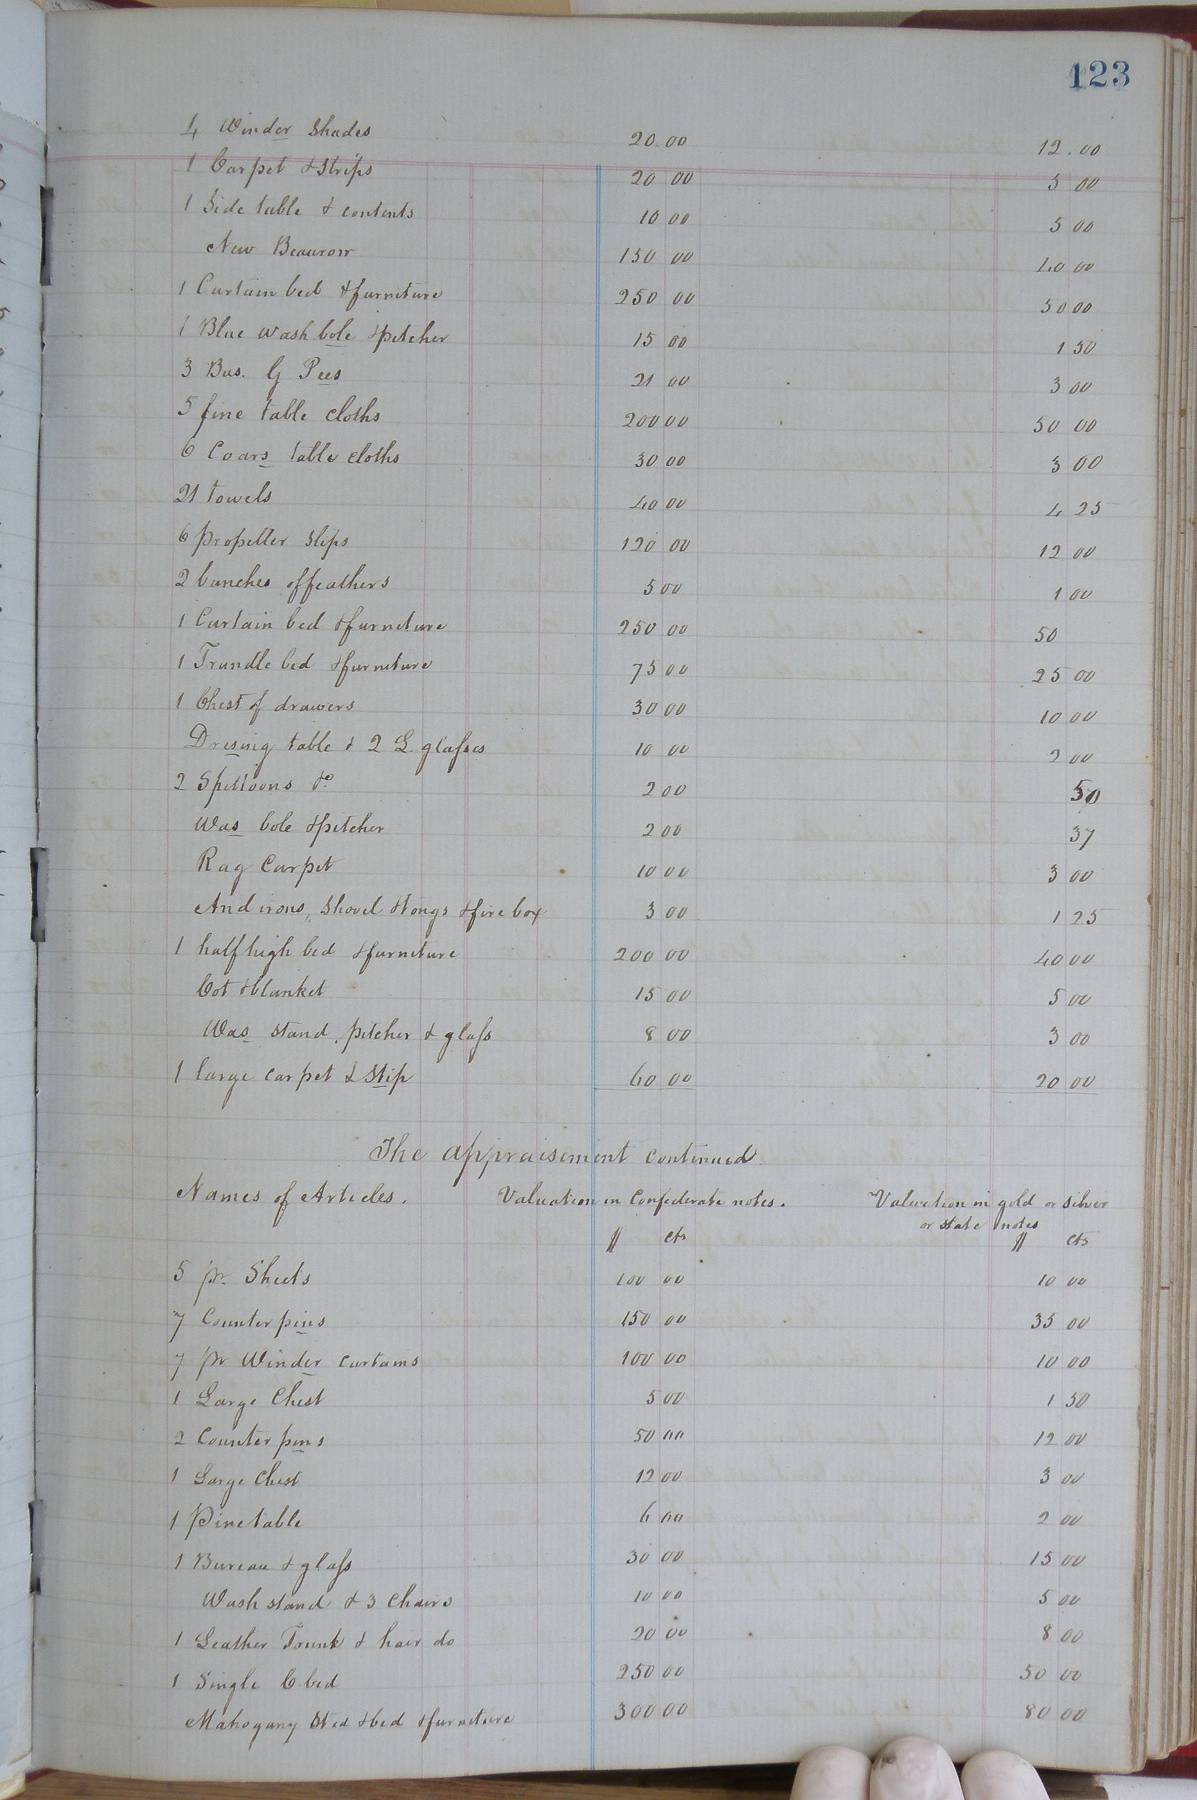 123
4 Winder Shades 20.00 12.00
1 Carpet & Strips 20 00 5 00
1 Side table & contents 10 00 5 00
New Beaurow 150 00 40 00
1 Curtain bed & furniture 250 00 50 00
1 Blue wash bole & pitcher 15 00 1 50
3 Bus. G Pees 21 00 3 00
5 fine table cloths 200 00 50 00
6 Coars table cloths 30 00 3 00
21 towels 40 00 4 25
6 propeller slips 120 00 12 00
2 bunches of feathers 5 00 1 00
1 Curtain bed & furniture 250 00 50
1 Trundle bed & furniture 75 00 25 00
1 Chest of drawers 30 00 10 00
Dresing table & 2 L. glasses 10 00 2 00
2 Spittoons &c 2 00 50
Was bole & pitcher 2 00 37
Rag Carpet 10 00 3 00
And irons, Shovel & tongs & fire box 3 00 1 25
1 half high bed & furniture 200 00 40 00
Cot & blanket 15 00 5 00
Was stand, pitcher & glass 8 00 3 00
1 large carpet & Stip 60 00 20 00
The appraisement continued
Names of Articles. Valuation in Confederate notes. Valuation in gold or silver
or state notes
$ cts $ cts
5 pr. Sheets 100 00 10 00
7 Counter pins 150 00 35 00
7 pr Winder curtains 100 00 10 00
1 Large Chest 5 00 1 50
2 Counter pins 50 00 12 00
1 Large Chest 12 00 3 00
1 Pine table 6 00 2 00
1 Bureau & glass 30 00 15 00
Wash stand & 3 Chairs 10 00 5 00
1 Leather Trunk & hair do 20 00 8 00
1 Single C. bed 250 00 50 00
Mahogany Sted & bed & furniture 300 00 80 00